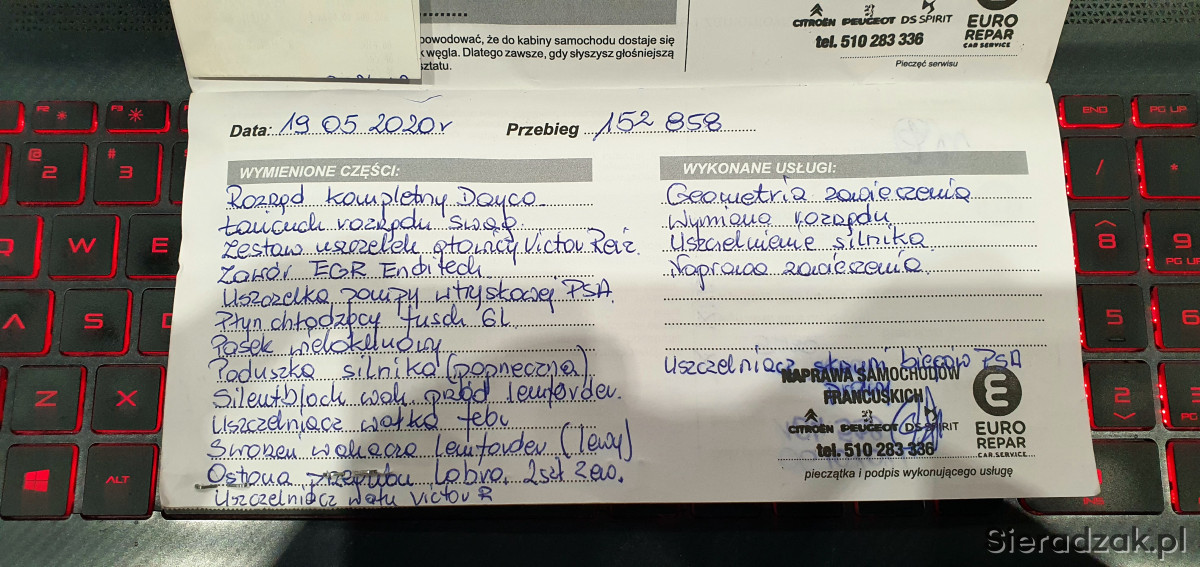 powodować, że do kabiny samochodu dostaje się
k węgla. Dlatego zawsze, gdy słyszysz głośniejszą
sztatu.
CITROËN PEUGEOT DS SPIRIT
tel. 510 283 336
EURO
REPAR
CAR SERVICE
Pieczęć serwisu
Data: 19 05 2020r Przebieg 152 858
WYMIENIONE CZĘŚCI:
Rozrząd kompletny Dayco
Łańcuch rozrządu swag
Zestaw uszczelek głowicy Victor Reiz.
Zawór EGR Enditech
Uszczelka pompy wtryskowej PSA
Płyn chłodzący fusch 6L
Pasek wieloklinowy
Poduszka silnika (poprzeczna)
Silentblock wah. przód lemforder.
Uszczelniacz wałka febi
Sworzeń wahacza lemforder (lewy)
Osłona przegubu Lobro. 2szt zew.
Uszczelniacz wału Victor R
WYKONANE USŁUGI:
Geometria zawieszenia
Wymiana rozrządu
Uszczelnienie silnika
Naprawa zawieszenia
Uszczelniacz skrzyni biegów PSA
NAPRAWA SAMOCHODÓW
FRANCUSKICH
CITROËN PEUGEOT DS SPIRIT
tel. 510 283 336
EURO
REPAR
CAR.SERVICE
pieczątka i podpis wykonującego usługę
F2
F3
@
2
#
3
Q
W
E
A
S
D
Z
X
ALT
END
PG UP
/
*
8
9
PG UP
5
6
2
3
INS
Sieradzak.pl